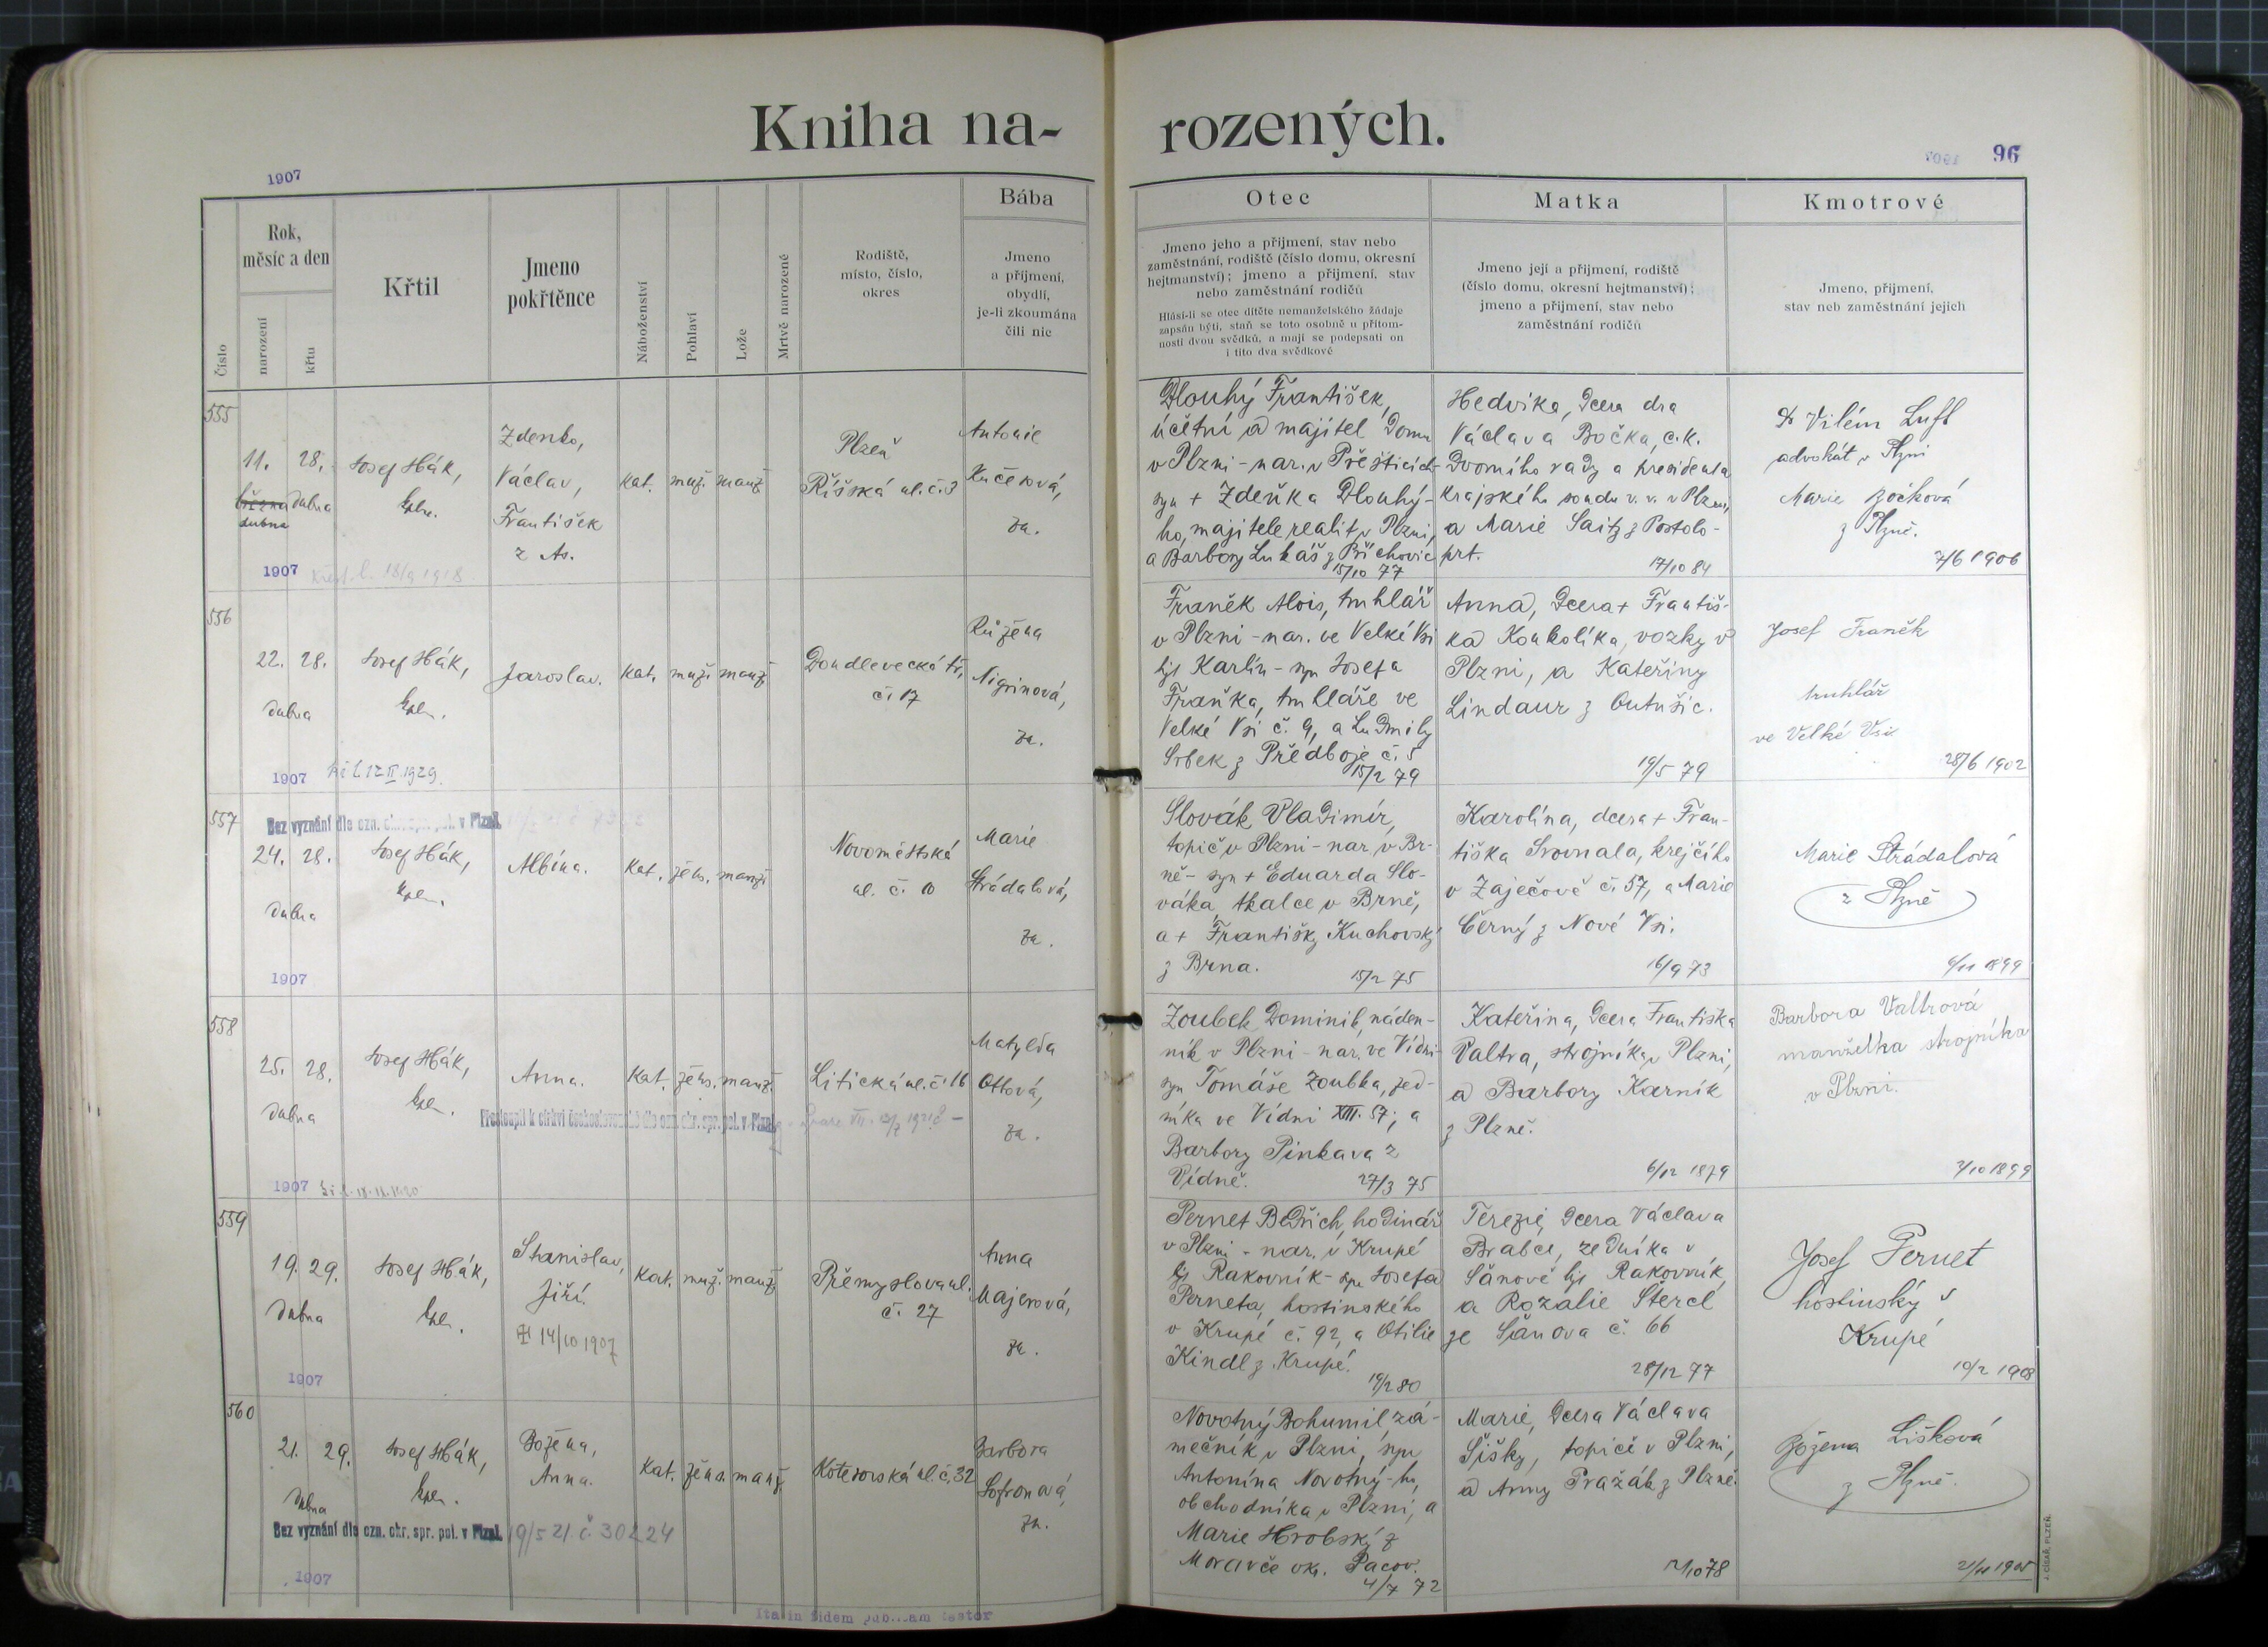 Kniha na-
rozených.
1907
96
Číslo
Rok,
měsíc a den
narození
křtu
Křtil
Jmeno
pokřtěnce
Náboženství
Pohlaví
Lože
Mrtvě narozené
Rodiště,
místo, číslo,
okres
Bába
Jmeno
a příjmení,
obydlí,
je-li zkoumána
čili nic
Otec
Jmeno jeho a příjmení, stav nebo
zaměstnání, rodiště (číslo domu, okresní
hejtmanství); jmeno a příjmení, stav
nebo zaměstnání rodičů
Hlásí-li se otec dítěte nemanželského žádaje
zapsán býti, staň se toto osobně u přítom-
nosti dvou svědků, a mají se podepsati on
i tito dva svědkové
Matka
Jmeno její a příjmení, rodiště
(číslo domu, okresní hejtmanství);
jmeno a příjmení, stav nebo
zaměstnání rodičů
Kmotrové
Jmeno, příjmení,
stav neb zaměstnání jejich
555
11. 28.
března dubna
dubna
1907
18/9 1918
Josef Hák,
kpln.
Zdenko,
Václav,
František
z As.
kat. muž. manž.
Plzeň
Říšská ul. č. 3
Antonie
Kučerová,
za.
Dlouhý František,
účetní a majitel domu
v Plzni - nar. v Přešticích -
syn + Zdeňka Dlouhý-
ho, majitele realit v Plzni,
a Barbory Lukáš z Příchovic
15/10 77
Hedvika, dcera dra
Václava Bočka, c.k.
dvorního rady a presidenta
krajského soudu v. v. v Plzni,
a Marie Saitz z Postolo-
prt.
17/10 84
Dr Vilém Luft
advokát v Plzni
Marie Bočková
z Plzně.
7/6 1906
556
22. 28.
dubna
1907
12 II 1929.
Josef Hák,
kpln.
Jaroslav.
kat. muž. manž.
Doudlevecká tř.
č. 17
Růžena
Nigrinová,
za.
Franěk Alois, truhlář
v Plzni - nar. ve Velké Vsi
hjt Karlín - syn Josefa
Fraňka, truhláře ve
Velké Vsi č. 9, a Ludmily
Srbek z Předboje č. 5
15/2 79
Anna, dcera + Františ-
ka Koukolíka, vozky v
Plzni, a Kateřiny
Lindaur z Outušic.
19/5 79
Josef Franěk
truhlář
ve Velké Vsi
28/6 1902
557
Bez vyznání dle ozn. okr. spr. pol. v Plzni.
24. 28.
dubna
1907
Josef Hák,
kpln.
Albína.
kat. žens. manž.
Novoměstská
ul. č. 10
Marie
Strádalová,
za.
Slovák Vladimír,
topič v Plzni - nar. v Br-
ně - syn + Eduarda Slo-
váka, tkalce v Brně,
a + Františky Kuchovský
z Brna.
15/2 75
Karolína, dcera + Fran-
tiška Srovnala, krejčího
v Zaječově č. 57, a Marie
Černý z Nové Vsi.
16/9 73
Marie Strádalová
z Plzně
6/11 1899
558
25. 28.
dubna
1907
Josef Hák,
kpln.
Anna.
kat. žens. manž.
Litická ul. č. 16
Přestoupil k církvi československé dle ozn. okr. spr. pol. v Plzni
Matylda
Ottová,
za.
Zoubek Dominik, náden-
ník v Plzni - nar. ve Vídni -
syn Tomáše Zoubka, zed-
níka ve Vídni XIII. 57; a
Barbory Pinkava z
Vídně.
27/3 75
Kateřina, dcera Františka
Valtra, strojníka v Plzni,
a Barbory Karník
z Plzně.
6/12 1879
Barbora Valtrová
manželka strojníka
v Plzni.
3/10 1899
559
19. 29.
dubna
1907
Josef Hák,
kpln.
Stanislav,
Jiří.
14/10 1907
kat. muž. manž.
Přemyslova ul.
č. 27
Anna
Majerová,
za.
Pernet Bedřich, hodinář
v Plzni - nar. v Krupé
hjt Rakovník - syn Josefa
Perneta, hostinského
v Krupé č. 92, a Otilie
Kindl z Krupé.
19/2 80
Terezie, dcera Václava
Brabce, zedníka v
Šanově hjt Rakovník,
a Rozalie Štercl
ze Šanova č. 66
28/12 77
Josef Pernet
hostinský v
Krupé
10/2 1908
560
21. 29.
dubna
Bez vyznání dle ozn. okr. spr. pol. v Plzni. 19/5 21 č. 30224
1907
Josef Hák,
kpln.
Božena,
Anna.
kat. žens. manž.
Koterovská ul. č. 32
Barbora
Sofronová,
za.
Novotný Bohumil, zá-
mečník v Plzni, syn
Antonína Novotný-ho,
obchodníka v Plzni, a
Marie Hrobský z
Moravče okr. Pacov.
4/7 72
Marie, dcera Václava
Šišky, topiče v Plzni,
a Anny Pražák z Plzně.
Božena Lišková
z Plzně.
J. CÍSAŘ, PLZEŇ.